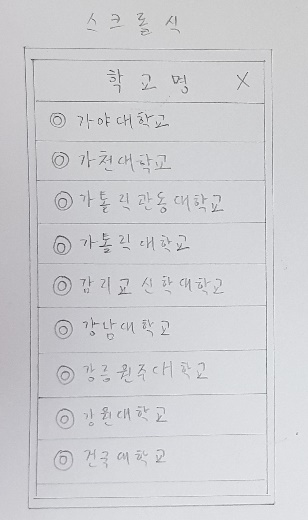 스크롤식
학교명 X
◎ 가야대학교
◎ 가천대학교
◎ 가톨릭관동대학교
◎ 가톨릭대학교
◎ 감리교신학대학교
◎ 강남대학교
◎ 강릉원주대학교
◎ 강원대학교
◎ 건국대학교